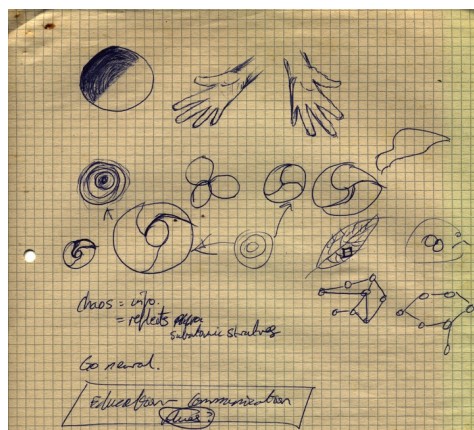 chaos = info.
= reflects
subatomic structures
Go neural.
Education – Communication